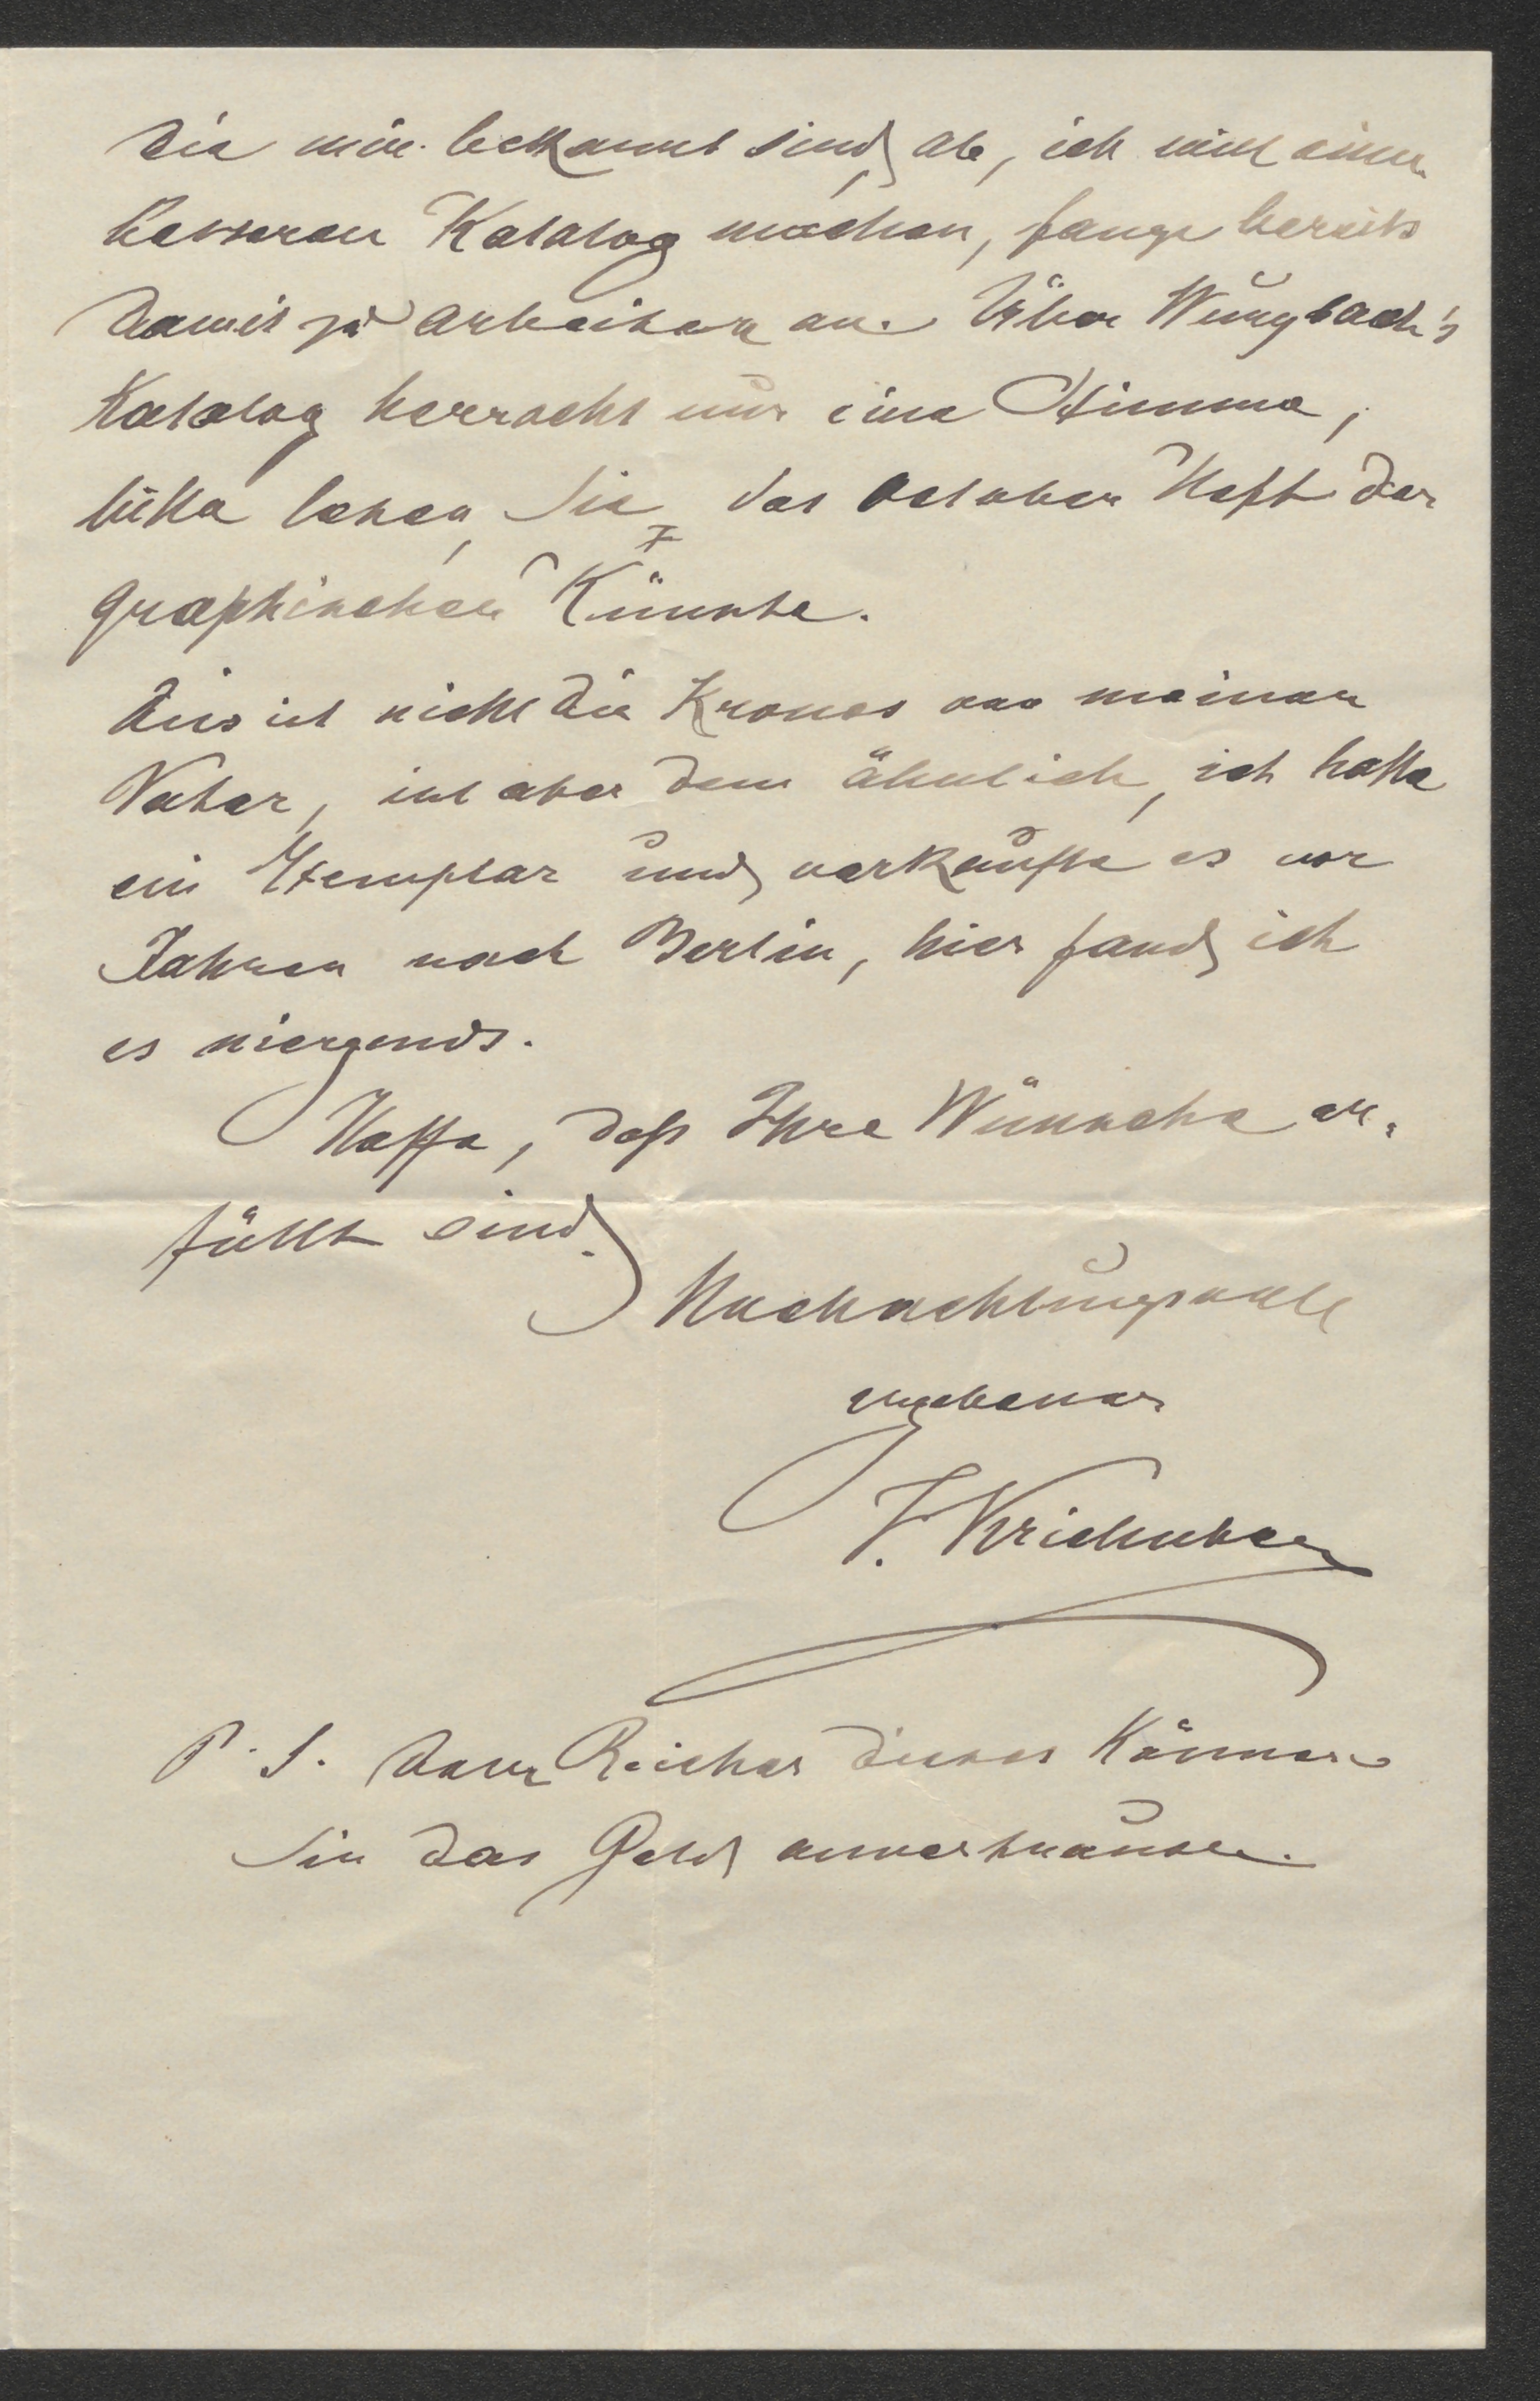 die mir bekannt sind, ab, ich will einen
besseren Katalog machen, fange bereits
damit zu arbeiten an. Über Wurzbach's
Katalog herrscht nur eine Stimme,
bitte lesen Sie das October Heft der
graphischen Künste.
Dies ist nicht die Krones von meinem
Vater, ist aber dem ähnlich, ich hatte
ein Exemplar und verkaufte es vor
Jahren nach Berlin, hier fand ich
es niergends.
Hoffe, daß Ihre Wünsche er-
füllt sind.
Hochachtungsvoll
ergebener
J. Kriehuber
P. S. dieses Können
Sie das Geld anvertrauen.